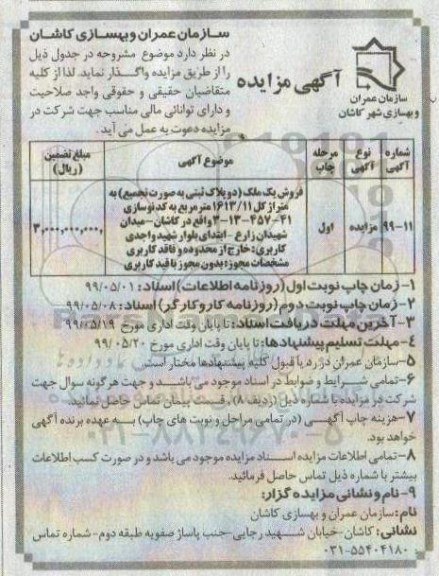 سازمان عمران و بهسازی کاشان
در نظر دارد موضوع مشروحه در جدول ذیل
را از طریق مزایده واگذار نماید. لذا از کلیه
متقاضیان حقیقی و حقوقی واجد صلاحیت
و دارای توانائی مالی مناسب جهت شرکت در
مزایده دعوت به عمل می آید.
آگهی مزایده
سازمان عمران
و بهسازی شهر کاشان
شماره آگهی
نوع آگهی
مرحله چاپ
موضوع آگهی
مبلغ تضمین (ریال)
۹۹-۱۱
مزایده
اول
فروش یک ملک (دو پلاک ثبتی به صورت تجمیع) به
متراژ کل ۱۶۱۳/۱۱ مترمربع به کد نوسازی
۳-۱۳-۴۵۷-۴۱ واقع در کاشان - میدان
شهیدان زارع - ابتدای بلوار شهید واحدی
کاربری: خارج از محدوده و فاقد کاربری
مشخصات مجوز: بدون مجوز با قید کاربری
۳,۰۰۰,۰۰۰,۰۰۰
۱- زمان چاپ نوبت اول (روزنامه اطلاعات) اسناد: ۹۹/۰۵/۰۱
۲- زمان چاپ نوبت دوم (روزنامه کار و کارگر) اسناد: ۹۹/۰۵/۰۸
۳- آخرین مهلت دریافت اسناد: تا پایان وقت اداری مورخ ۹۹/۰۵/۱۹
۴- مهلت تسلیم پیشنهادها: تا پایان وقت اداری مورخ ۹۹/۰۵/۲۰
۵- سازمان عمران در رد یا قبول کلیه پیشنهادها مختار است.
۶- تمامی شرایط و ضوابط در اسناد موجود می باشد و جهت هرگونه سوال جهت
شرکت در مزایده با شماره ذیل (ردیف ۸)، قسمت پیمان تماس حاصل نمائید.
۷- هزینه چاپ آگهی (در تمامی مراحل و نوبت های چاپ) به عهده برنده آگهی
خواهد بود.
۸- تمامی اطلاعات مزایده اسناد مزایده موجود می باشد و در صورت کسب اطلاعات
بیشتر با شماره ذیل تماس حاصل فرمائید.
۹- نام و نشانی مزایده گزار:
نام: سازمان عمران و بهسازی کاشان
نشانی: کاشان - خیابان شهید رجایی - جنب پاساژ صفویه طبقه دوم - شماره تماس
۰۳۱-۵۵۴۰۴۱۸۰
۰۲۱-۸۸۳۴۹۶۷۰-۵